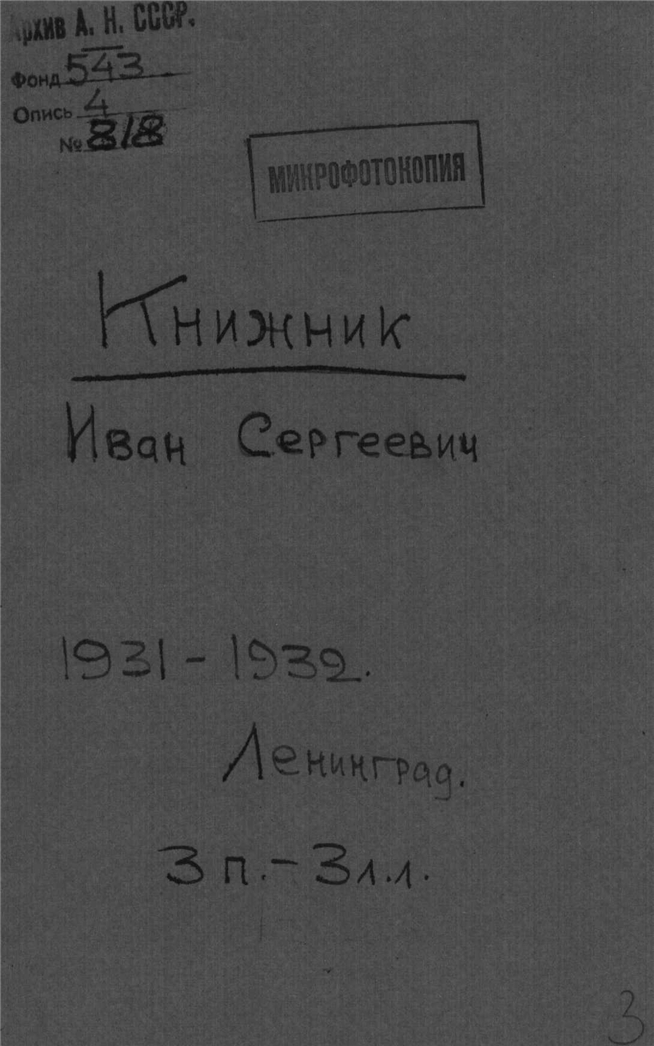 Архив А. Н. СССР.
Фонд 543
Опись 4
№ 818
МИКРОФОТОКОПИЯ
Книжник
Иван Сергеевич
1931-1932.
Ленинград.
3 п.-3 л.л.
3